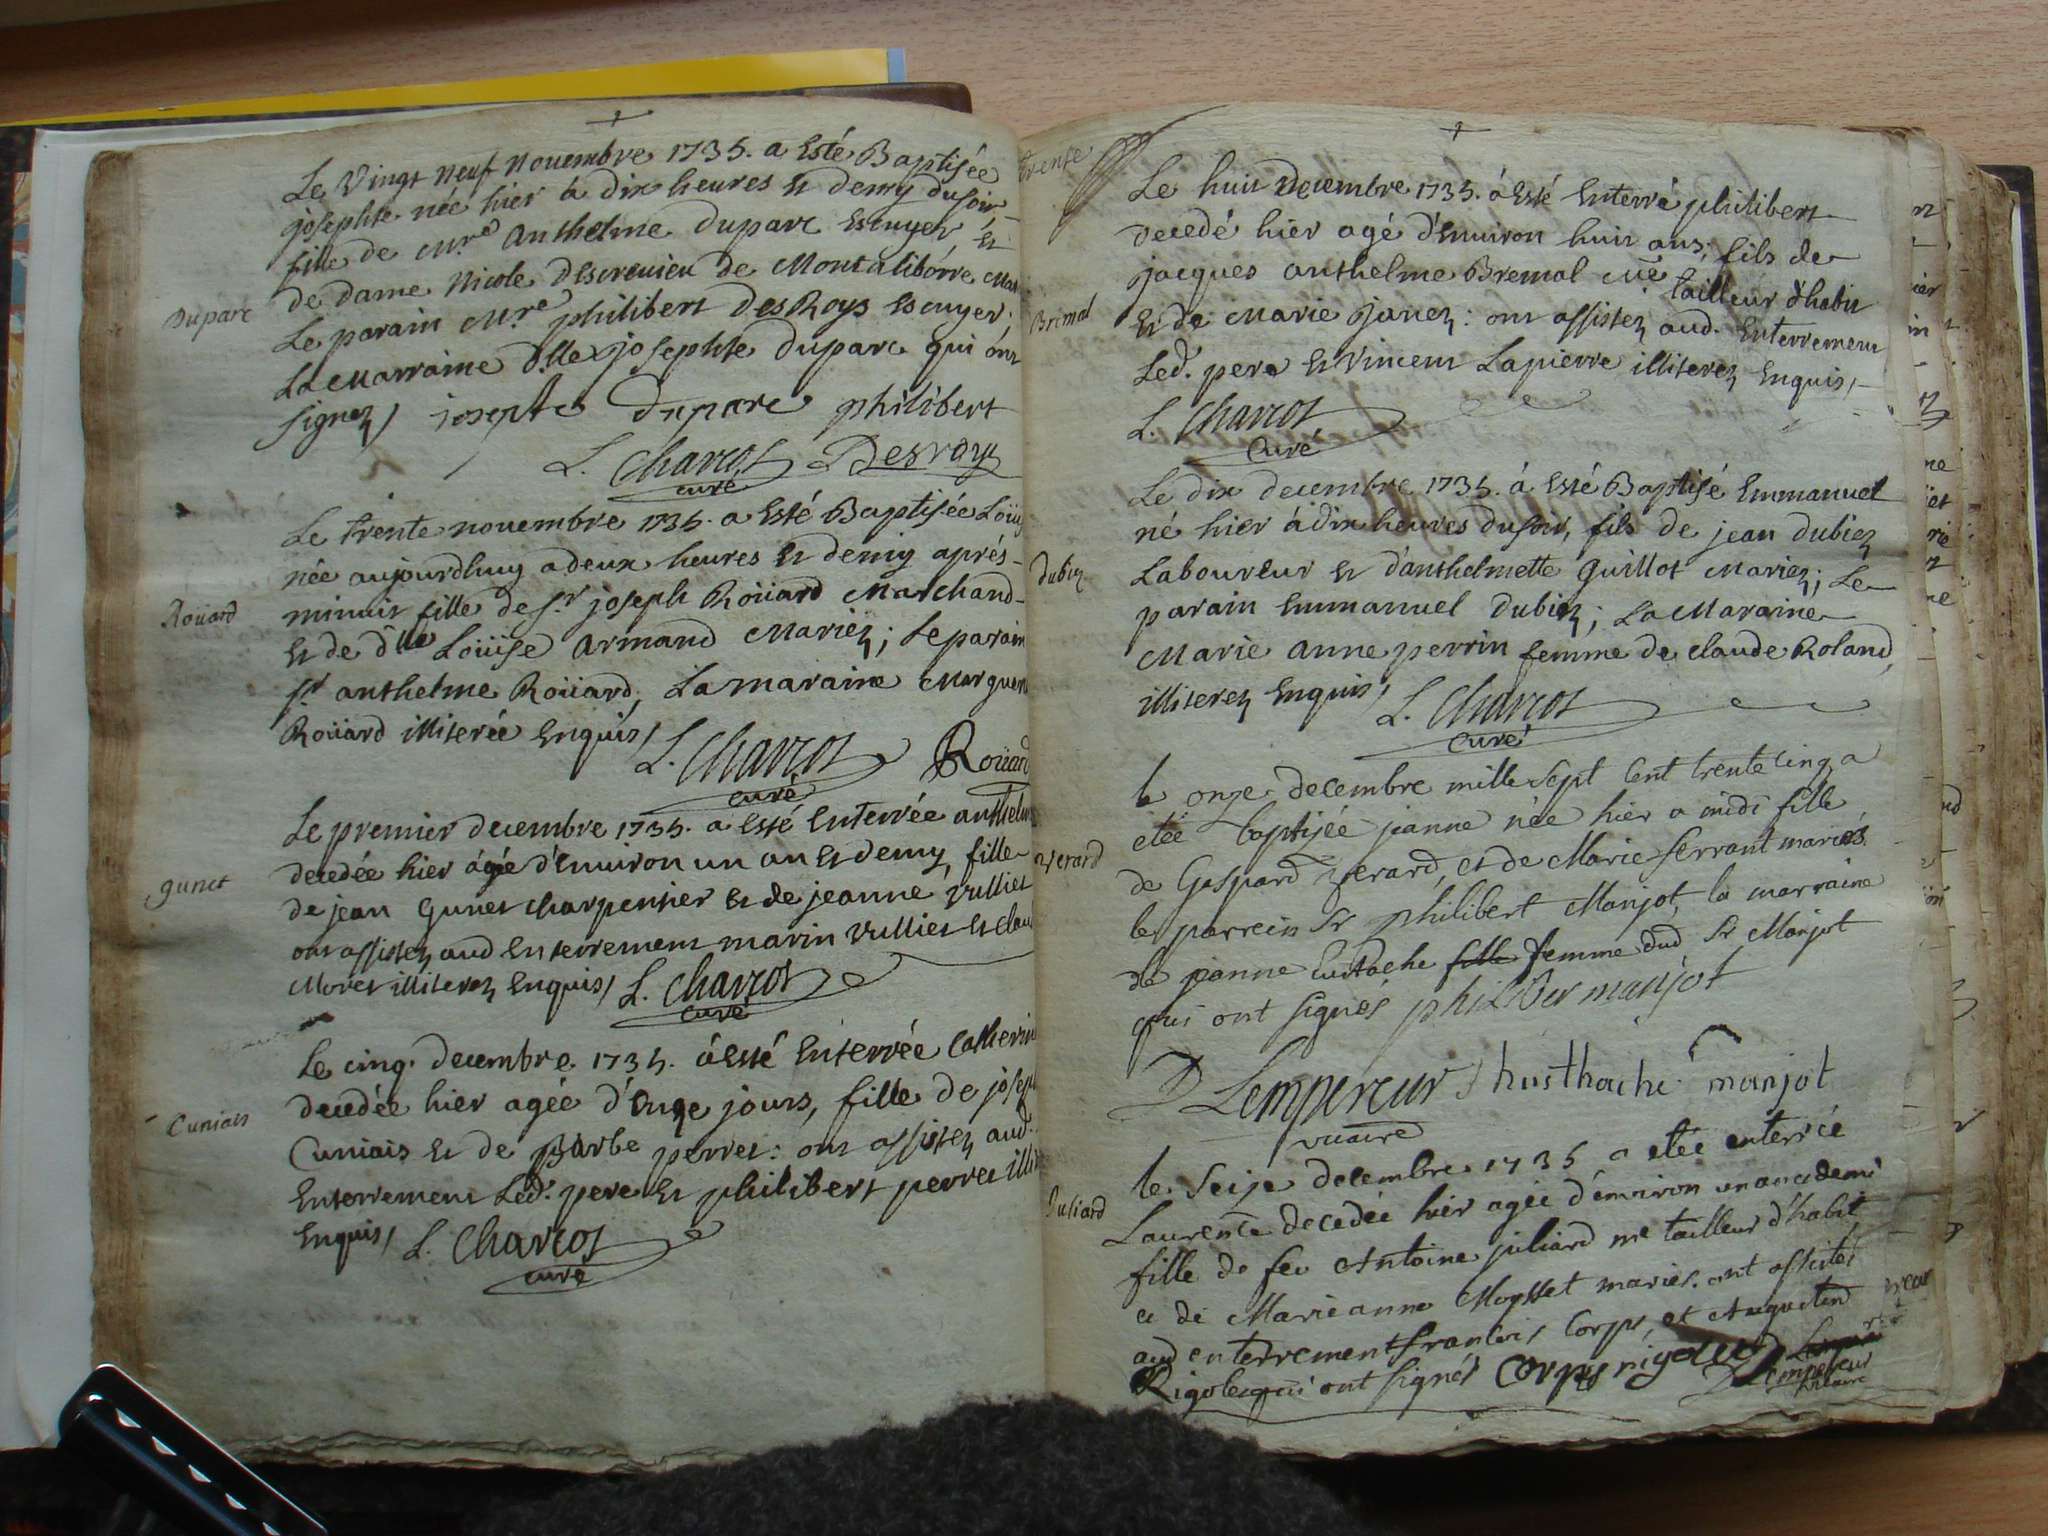 Le Vingt neuf Novembre 1735. a Esté Baptisée
josephte née hier à dix heures et demy du soir,
fille de Mre Anthelme Duparc Escuyer, et
de Dame Nicole Descrevieu de Montaliborre
Duparc
Le parain Mre philibert DesRoys Escuyer;
La Marraine dlle josephte Duparc qui ont
signez / josephte duparc philibert
L. Charcot Desroys
curé
Le trente novembre 1735. a Esté Baptisée
née aujourdhuy a deux heures et demy aprés
minuit fille de sr joseph Roüard Marchand
Roüard
et de dlle Loüise Armand Mariez; Le parain
sr anthelme Roüard, La maraine
Roüard illiterée Enquis /
L. Charcot Roüard
curé
Le premier decembre 1735. a Esté Enterrée
decedée hier ágée d'Environ un an et demy, fille
gunet
de jean Gunet charpentier et de jeanne Vulliet
ont assistez aud Enterrement marin Vulliet et
Moret illiterez Enquis / L. Charcot
curé
Le cinq. decembre 1735. á Esté Enterrée
decedée hier agée d'Onze jours, fille de
Cuniais
Cuniais et de Barbe perret: ont assistez aud.
Enterrement Led. pere et philibert perret
Enquis / L. Charcot
curé
trente
Le huit Decembre 1735. á Esté Enterré philibert
Decedé hier agé d'Environ huit ans; fils de
jacques anthelme Bremal Me tailleur d'habit
Brimal
et de Marie Janez: ont assistez aud. Enterrement
Led. pere et Vincent Lapierre illiterez Enquis /
L. Charcot
Curé
Le dix decembre 1735. á Esté Baptisé Emmanuel
né hier á dix heures du soir, fils de jean dubiez
dubiez
Laboureur et d'anthelmette Guillot Mariez; Le
parain Emmanuel Dubiez; La Maraine
Marie Anne perrin femme de claude Roland,
illiterez Enquis / L. Charcot
curé
le onze decembre mille sept cent trente cinq a
eteé baptisée jeanne née hier a midi fille
verard
de Gaspard verard, et de Marie ferrant mariés.
le parrein Sr philibert Manjot, la marraine
de jeanne Eustache fille femme dud Sr Manjot
qui ont signés philiber manjot
D Lempereur husthache manjot
vicaire
le seize decembre 1735 a eteé enterrée
Laurence decedée hier agée d'environ un an et demi
Juliard
fille de feu Antoine juliard me tailleur d'habit
et de Marie anne Moysset mariés. ont assistés
aud enterrement francois Corps, et Augustin
Rigolet qui ont signés Corps rigolet D Lempereur
vicaire